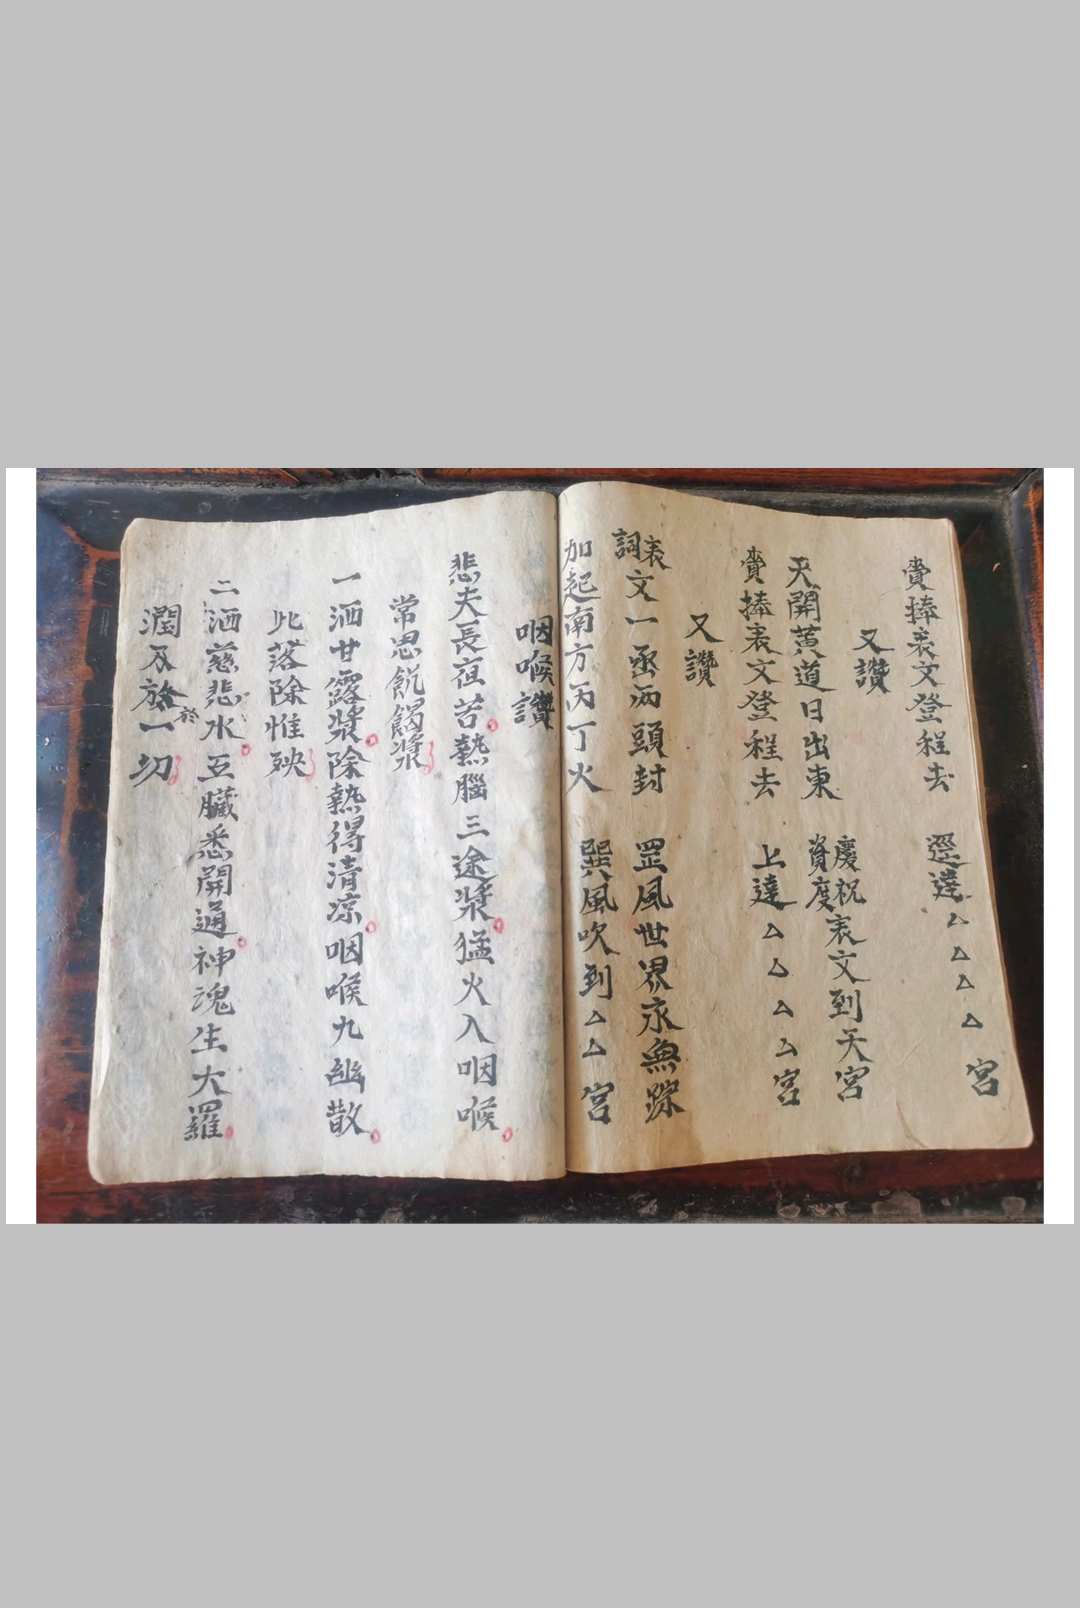 賫捧表文登程去 逕達△△△△宮
又讚
天開黃道日出東 慶祝資度表文到天宮
賫捧表文登程去 上達△△△△宮
又讚
表詞文一函兩頭封 罡風世界永無踪
加起南方丙丁火 巽風吹到△△宮
咽喉讚
悲夫長夜苦熱腦三途漿猛火入咽喉
常思飢餲漿
一洒甘露漿除熱得清凉咽喉九幽散
北落除惟殃
二洒慈悲水五臟悉開通神魂生大羅
潤及於一切